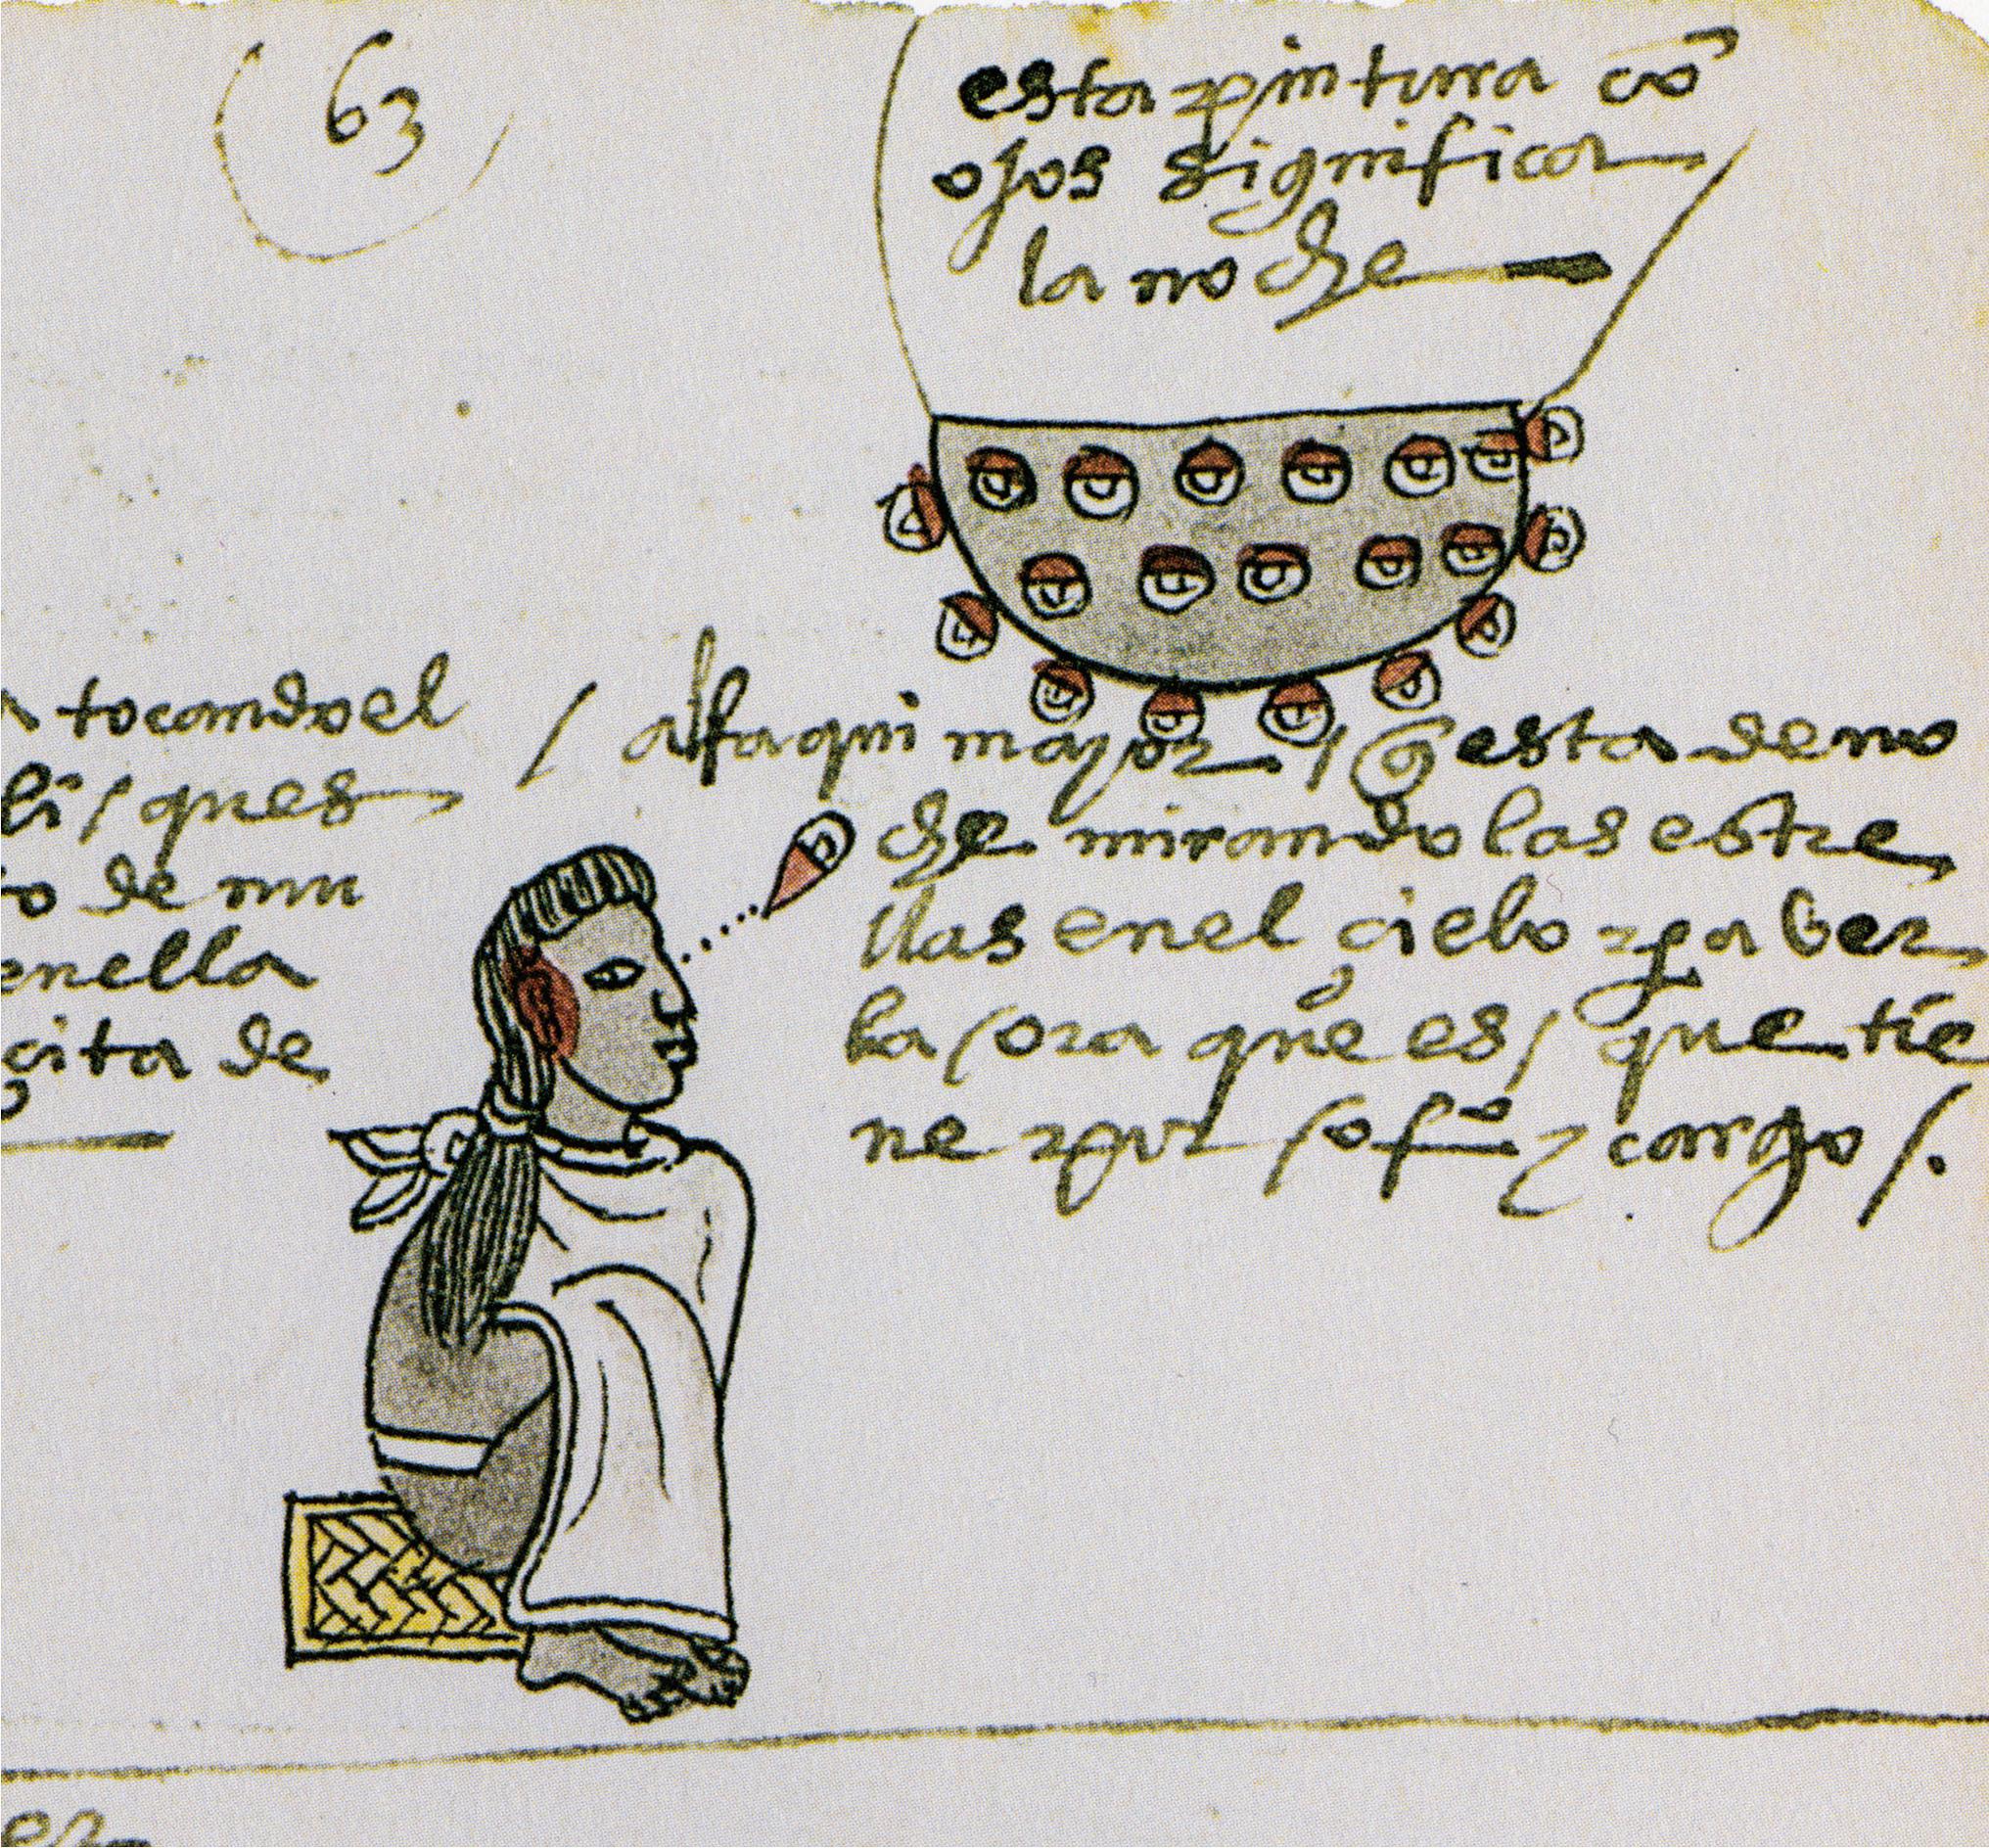 63
esta pintura cō
ojos significa
la noche
tocando el
ques
de mu
en ella
de
/ alfaqui mayor / q̄ esta de no
che mirando las estre
llas en el cielo pa ber
la / ora que es / que tie
ne por / of° y cargo /.